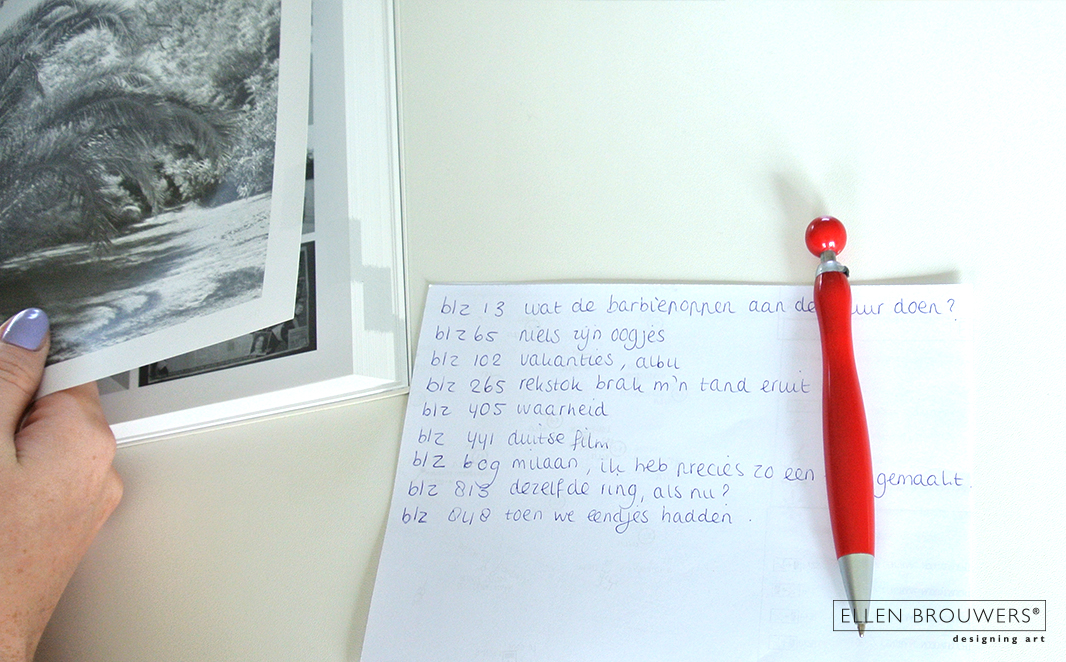 blz 13 wat de barbiepoppen aan de uur doen?
blz 65 niels zijn oogjes
blz 102 vakanties, albu
blz 265 rekstok brak m'n tand eruit
blz 405 waarheid
blz 441 duitse film
blz 609 milaan, ik heb precies zo een gemaakt.
blz 813 dezelfde ring, als nu?
blz 848 toen we eendjes hadden.
ELLEN BROUWERS®
designing art